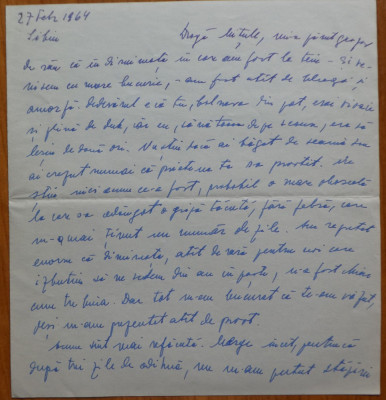 27 Febr 1964
Sibiu
Dragă Puțule, mi-a părut groaznic
de rău că în dimineața în care am fost la tine – și ve-
nisem cu mare bucurie, – am fost atît de bleagă, și
amorfă. Adevărul e că tu, bolnava din pat, erai vioaie
și plină de duh, iar eu, căzătura de pe scaun, era să
leșin de două ori. Nu știu dacă ai băgat de seamă sau
ai crezut numai că prietena ta s'a prostit. Nu
știu nici acum ce-a fost, probabil o mare oboseală
la care s'a adăugat o gripă tăcută, fără febră, care
m-a mai ținut un număr de zile. Am regretat
enorm că dimineața, atît de rară pentru noi care
izbutim să ne vedem din an în paște, n-a fost chiar
cum trebuia. Dar tot m-am bucurat că te-am văzut,
deși m-am prezentat atît de prost.
Acum sînt mai refăcută. Merge încet, pentrucă
după trei zile de odihnă, nu m-am putut stăpîni